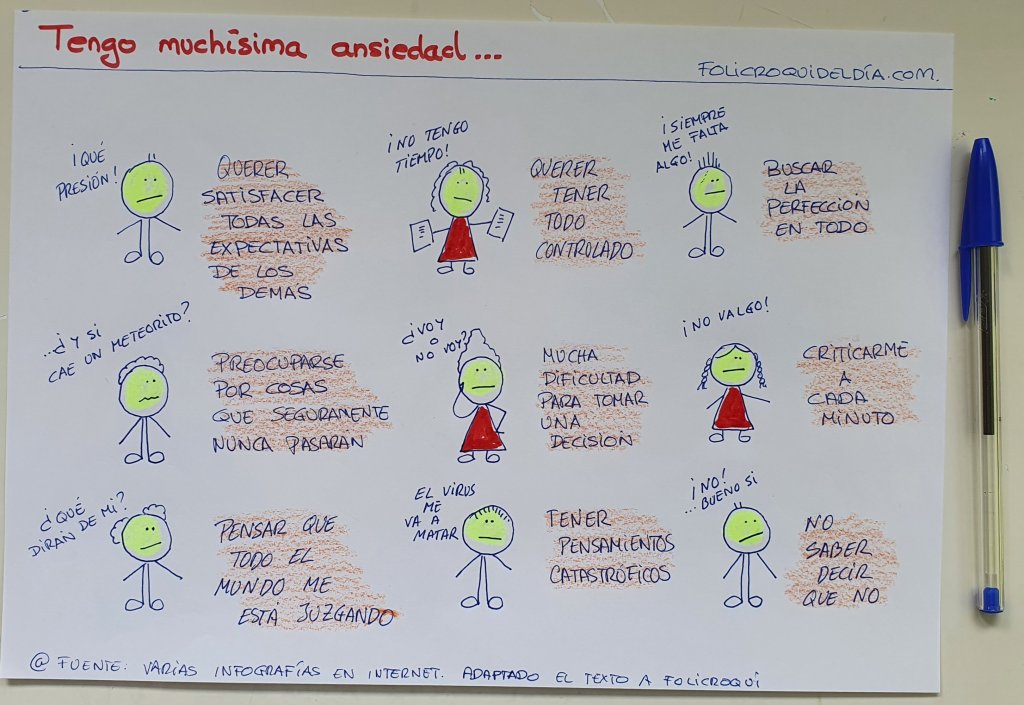 Tengo muchísima ansiedad...
FOLICROQUIDELDÍA.COM.
¡QUÉ
PRESIÓN!
QUERER
SATISFACER
TODAS LAS
EXPECTATIVAS
DE LOS
DEMAS
¡NO TENGO
TIEMPO!
QUERER
TENER
TODO
CONTROLADO
¡SIEMPRE
ME FALTA
ALGO!
BUSCAR
LA
PERFECCION
EN TODO
...¿Y SI
CAE UN METEORITO?
PREOCUPARSE
POR COSAS
QUE SEGURAMENTE
NUNCA PASARÁN
¿VOY
O
NO VOY?
MUCHA
DIFICULTAD
PARA TOMAR
UNA
DECISIÓN
¡NO VALGO!
CRITICARME
A
CADA
MINUTO
¿QUÉ
DIRAN DE MI?
PENSAR QUE
TODO EL
MUNDO ME
ESTÁ JUZGANDO
EL VIRUS
ME
VA A
MATAR
TENER
PENSAMIENTOS
CATASTRÓFICOS
¡NO!
...BUENO SI
NO
SABER
DECIR
QUE NO
@ FUENTE: VARIAS INFOGRAFÍAS EN INTERNET. ADAPTADO EL TEXTO A FOLICROQUI